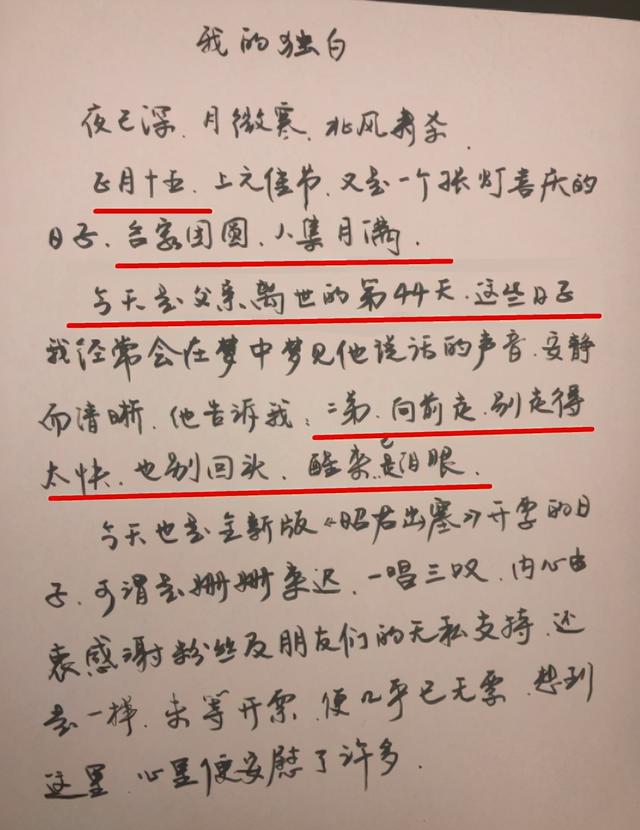 我的独白
夜已深、月微寒、北风肃杀.
正月十五、上元佳节、又是一个张灯喜庆的
日子、合家团圆、人集月满.
今天是父亲离世的第44天.这些日子
我经常会在梦中梦见他说话的声音.安静
而清晰.他告诉我:二弟.向前走.别走得
太快.也别回头.醒来已是泪眼.
今天也是全新版《昭君出塞》开票的日
子.可谓是姗姗来迟.一唱三叹.内心由
衷感谢粉丝及朋友们的无私支持.还
是一样.未等开票.便几乎已无票.想到
这里.心里便安慰了许多.